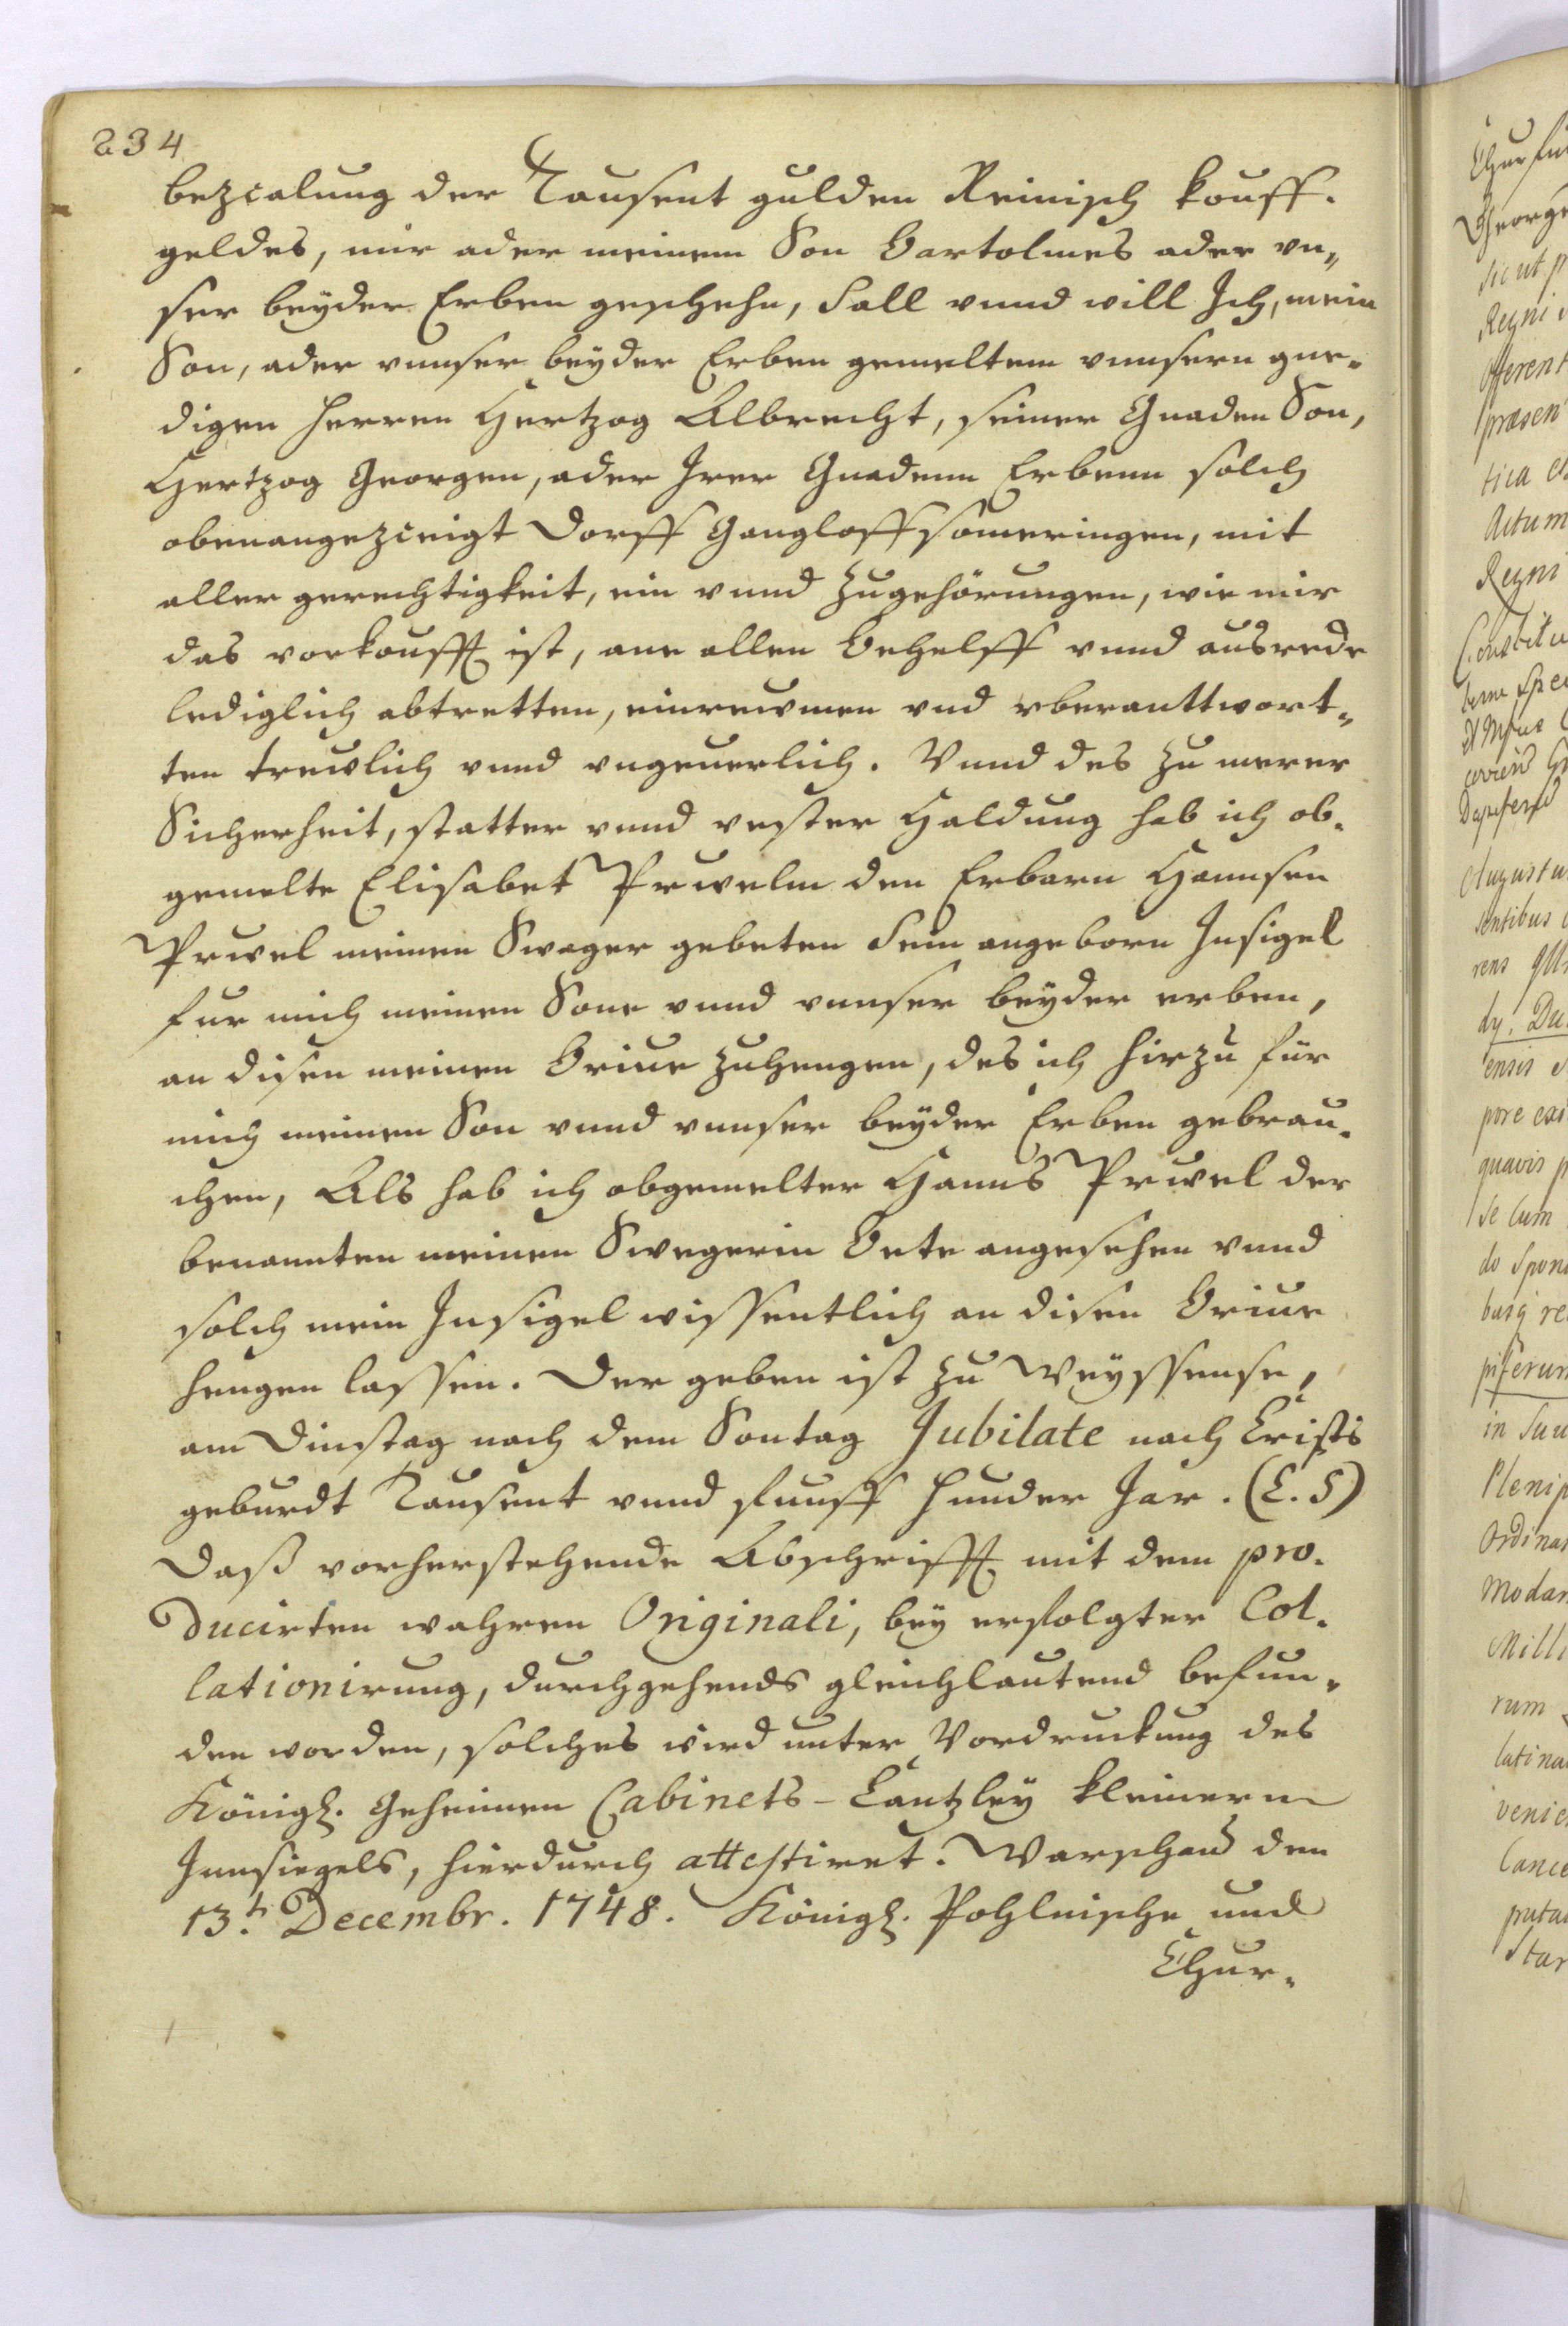 234
bezcalung der Tausent gulden Reinisch kouff-
geldes, mir ader meinem Son Bartolmes ader vn-
ser beyder Erben geschehn, Sall vnnd will Ich, mein
Son, ader vnnser beyder Erben gemeltem vnnsern gne-
digen Herren Hertzog Albrecht, seiner Gnaden Son,
Hertzog Georgen, ader Irer Gnadenn Erbenn solch
obenangezceigt Dorff Gangloffsömeringen, mit
aller gerechtigkeit, ein vnnd zugehörungen, wie mir
das vorkoufft ist, ane allen Behelff vnnd ausrede
lediglich abtretten, einrewmen vnd vberanttwort-
ten trewlich vnnd vngeuerlich. Vnnd des zu merer
Sicherheit, statter vnnd vester Haldung hab ich ob-
gemelte Elisabet Prwelm den Erbarn Hannsen
Prwel meinen Swager gebeten Sein angeborn Insigel
fur mich meinen Sone vnnd vnnser beyder erben,
an disen meinen Briue zuhengen, des ich hirzu für
mich meinen Son vnnd vnnser beyder Erben gebrau-
chen, Als hab ich obgemelter Hanns Prwel der
benannten meinen Swegerin Bete angesehen vnnd
solch mein Insigel wissentlich an disen Briue
hengen lassen. Der geben ist zu Weyssense,
am Dinstag nach dem Sontag Jubilate nach Cristi
geburdt Tausent vnnd funff hunder Jar. (L.S)
Daß vorherstehende Abschrifft mit dem pro-
ducirten wahren Originali, bey erfolgter Col-
lationirung, durchgehends gleichlautend befun-
den worden, solches wird unter Vordruckung des
Königl. Geheimen Cabinets-Cantzley kleinern
Innsiegels, hierdurch attestiret. Warschau den
13.t Decembr. 1748. Königl. Pohlnische und
Chur-